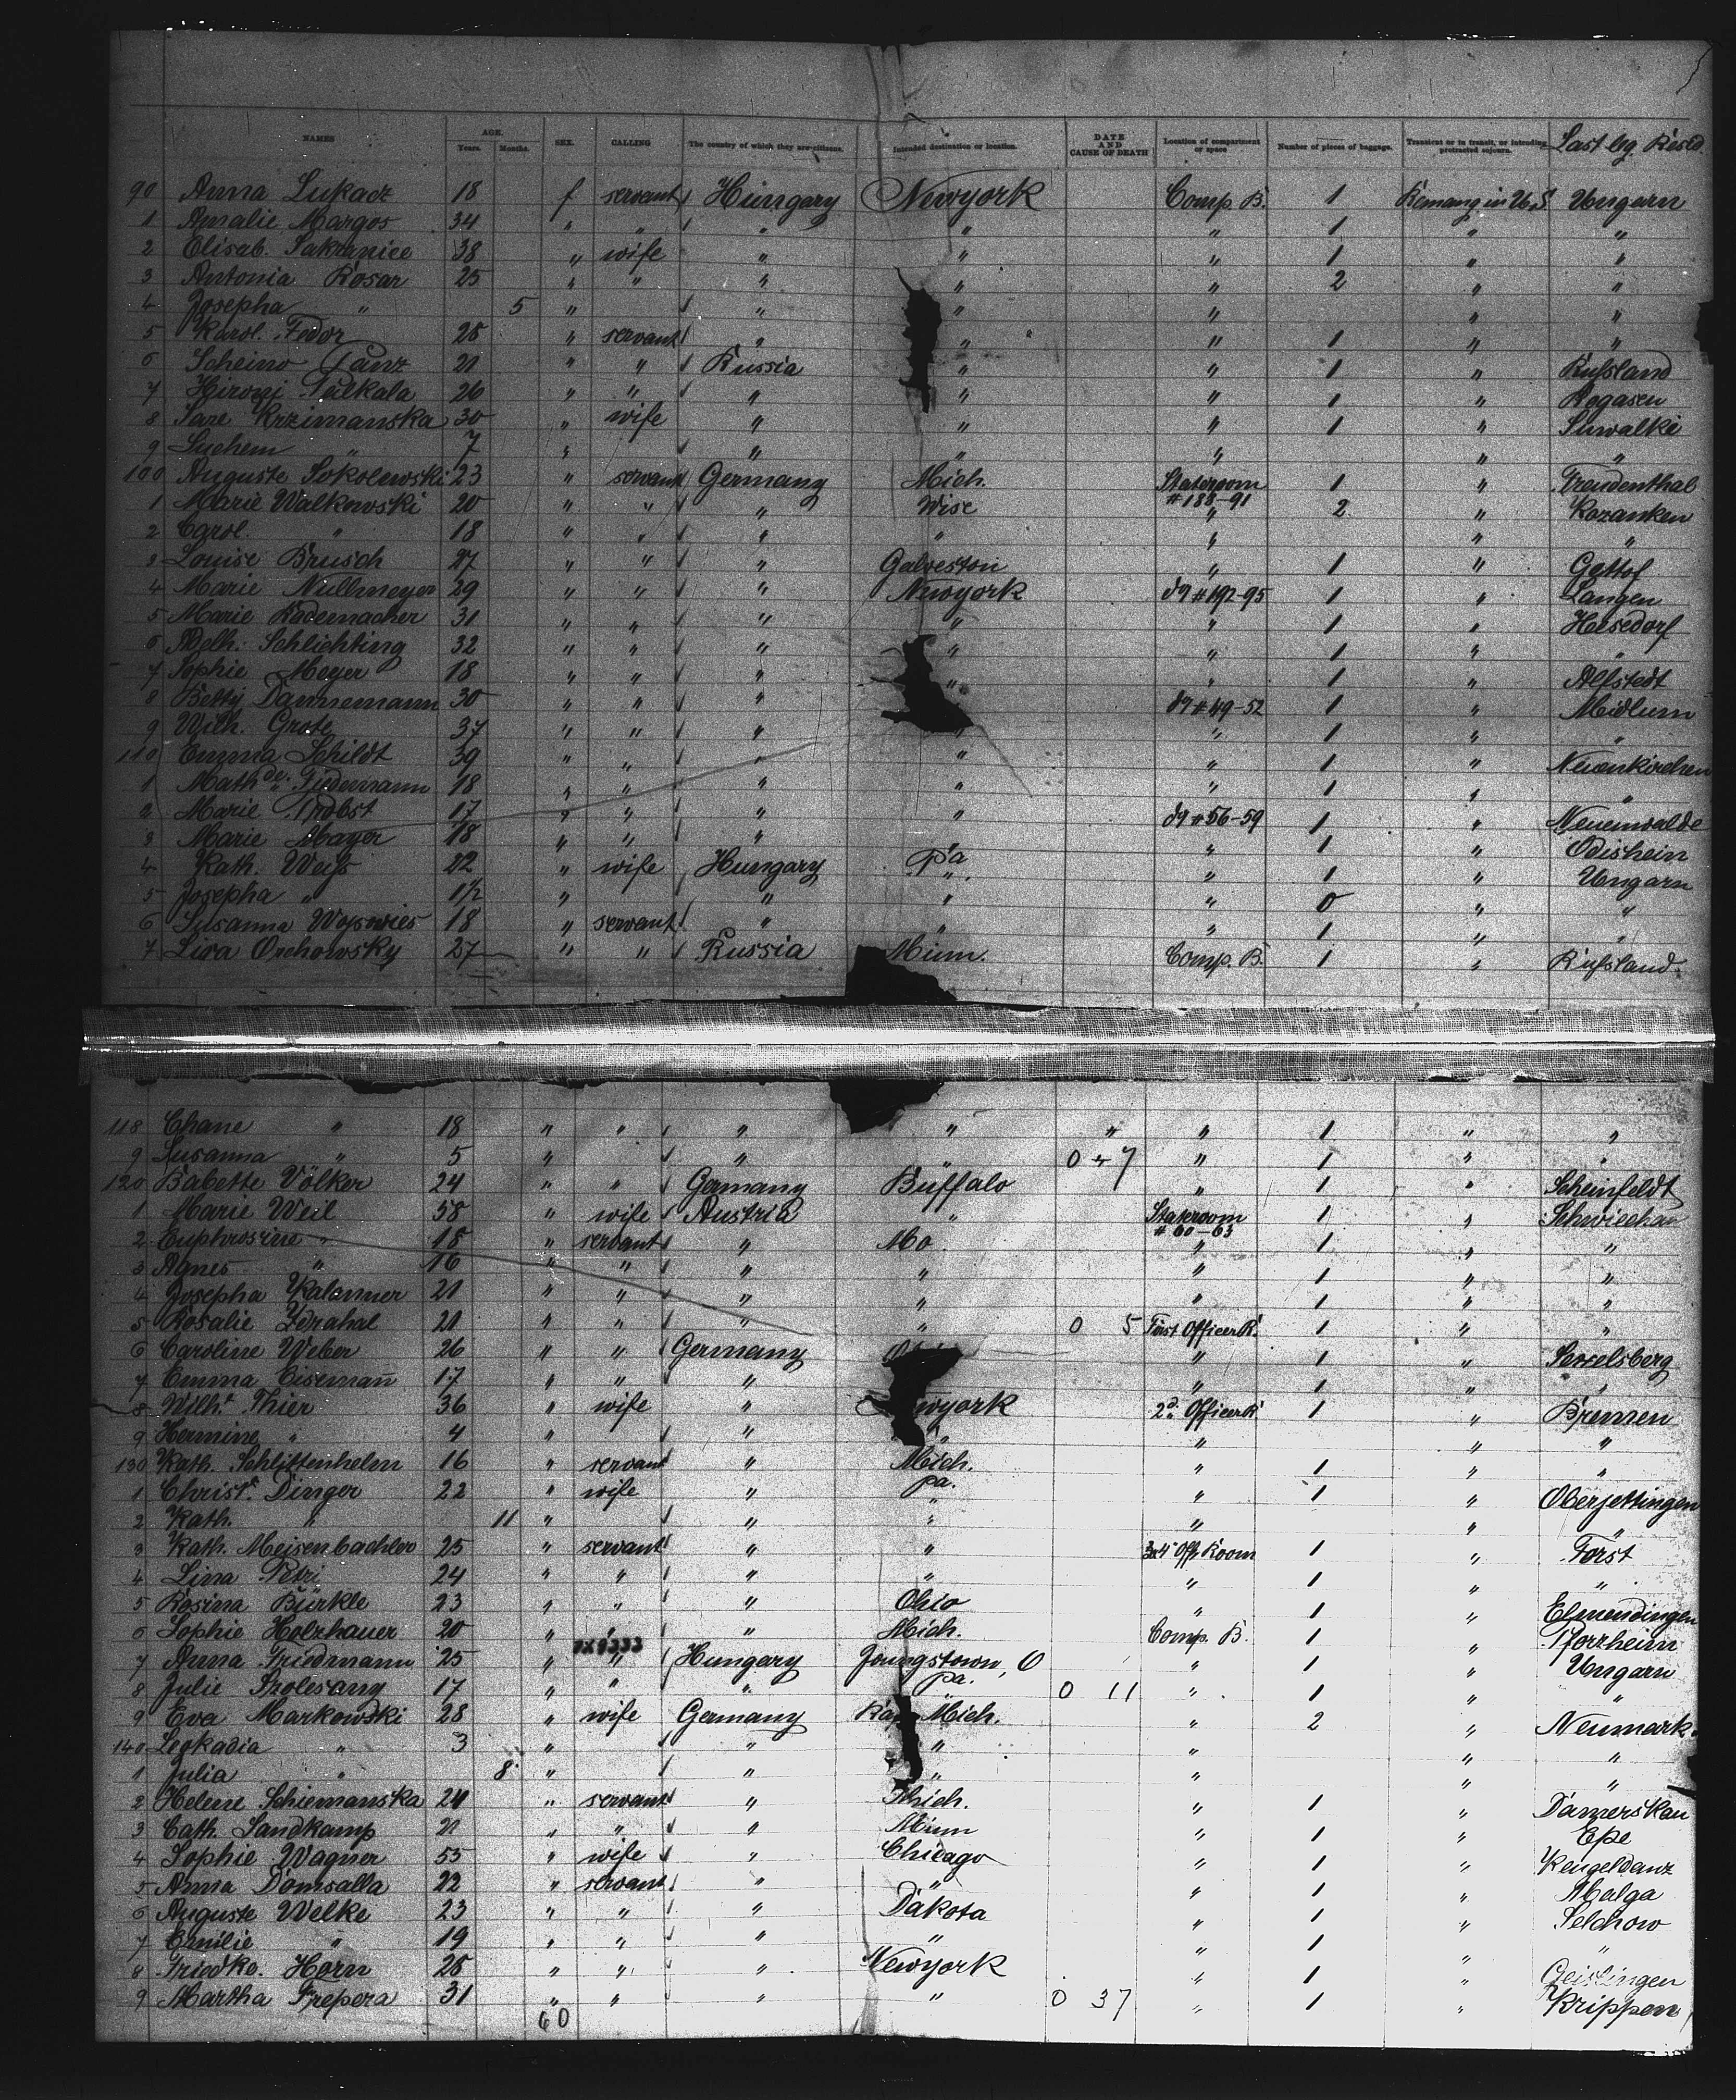 NAMES AGE. Years. Months. SEX. CALLING The country of which they are citizens. Intended destination or location. DATE AND CAUSE OF DEATH Location of compartment or space Number of pieces of baggage. Transient or in transit, or intending protracted sojourn. Last leg. Resid.
90 Anna Lukacz 18 f servant Hungary Newyork Comp. B. 1 Remang in U.S. Ungarn
1 Amalie Margos 34 " " " " " 1 " "
2 Elisab. 38 " wife " " " 1 " "
3 Antonia Rosar 25 " " " " " 2 " "
4 Josepha " 5 " " " " " "
5 Karol. Fedor 28 " servant " " " 1 " "
6 Scheino 21 " " Russia " " 1 " Rußland
7 26 " " " " " 1 " Rogasen
8 Sare Krzimanska 30 " wife " " " 1 " Suwalki
9 " 7 " " " " " "
100 Auguste Sokolewski 23 " servant Germany Mich. Stateroom #188-91 1 " Freudenthal
1 Marie Walkowski 20 " " " Wisc " 2 " Kozanken
2 Carol. " 18 " " " " " " "
3 Louise Brusch 27 " " " Galveston " 1 " Gettof
4 Marie Nullmeyer 29 " " " Newyork do #192-95 1 " Langen
5 Marie Rademacher 31 " " " " " 1 " Helsedorf
6 Adelh. Schlichting 32 " " " " " 1 " "
7 Sophie Meyer 18 " " " " " 1 " Allstedt
8 Betty Dannemann 30 " " " do #49-52 1 " Midlum
9 Wilh. Grote 37 " " " " " 1 " "
110 Emma Schildt 39 " " " " " 1 " Neuenkirchen
1 Mathde. Tiedemann 18 " " " " " 1 " "
2 Marie Probst 17 " " " " do #56-59 1 " Neuenwalde
3 Marie Mayer 18 " " " " " 1 " Odishein
4 Kath. Weiß 22 " wife Hungary Pa. " 1 " Ungarn
5 Josepha " 1½ " " " " 0 " "
6 Susanna 18 " servant " " " 1 " "
7 Lisa Orchowsky 27 " " Russia Minn. Comp. B. 1 " Rußland
118 Chane " 18 " " " " " " 1 " "
9 Susanna " 5 " " " 0 " 7 " 1 " "
120 Babette Völker 24 " " Germany Buffalo " 1 " Scheinfeldt
1 Marie Weil 58 " wife Austria " Stateroom #60-63 1 " Schwiechau
2 Euphrosine " 18 " servant " Mo. " 1 " "
3 Agnes " 16 " " " " " 1 " "
4 Josepha Kalenner 21 " " " " " 1 " "
5 Rosalie Zdrahal 21 " " " " 0 5 First Officer R. 1 " "
6 Caroline Weber 26 " " Germany " 1 " Sesselsberg
7 Emma Eisemañ 17 " " " " 1 " "
8 Wilh.e Thier 36 " wife " wyork 2d. Officer R 1 " Bremen
9 Hermine " 4 " " " " " "
130 Kath. Schlittenhelm 16 " servant " Mich. " 1 " "
1 Christ. Dinger 22 " wife " pa. " 1 " Oberjettingen
2 Kath. " 11 " " " " " "
3 Kath. Meisenbachler 25 " servant " " 3&4 Off. Room 1 " Forst
4 Lina Petri 24 " " " " " 1 " "
5 Rosina Bürkle 23 " " " Ohio " 1 " Elmendingen
6 Sophie Holzhauer 20 " " " Mich. Comp. B. 1 " Pforzheim
7 Anna Friedmann 25 " " Hungary Youngstown, O " 1 " Ungarn
8 Julie 17 " " " pa. 0 11 " 1 " "
9 Eva Markowski 28 " wife Germany Mich. " 2 " Neumark
140 Leokadia " 3 " " " " " "
1 Julia " 8 " " " " " "
2 Helene Schiemanska 24 " servant " Mich. " 1 " Damerskau
3 Cath. Sandkamp 21 " " " Minn " 1 " Epe
4 Sophie Wagner 55 " wife " Chicago " 1 " Kengeldanz
5 Anna Domsalla 22 " servant " " " 1 " Malga
6 Auguste Welke 23 " " " Dakota " 1 " Selchow
7 Emilie " 19 " " " " " 1 " "
8 Friedke. Horn 28 " " " Newyork " 1 " Geislingen
9 Martha Trepera 31 " " " " 0 37 " 1 " Krippen
60